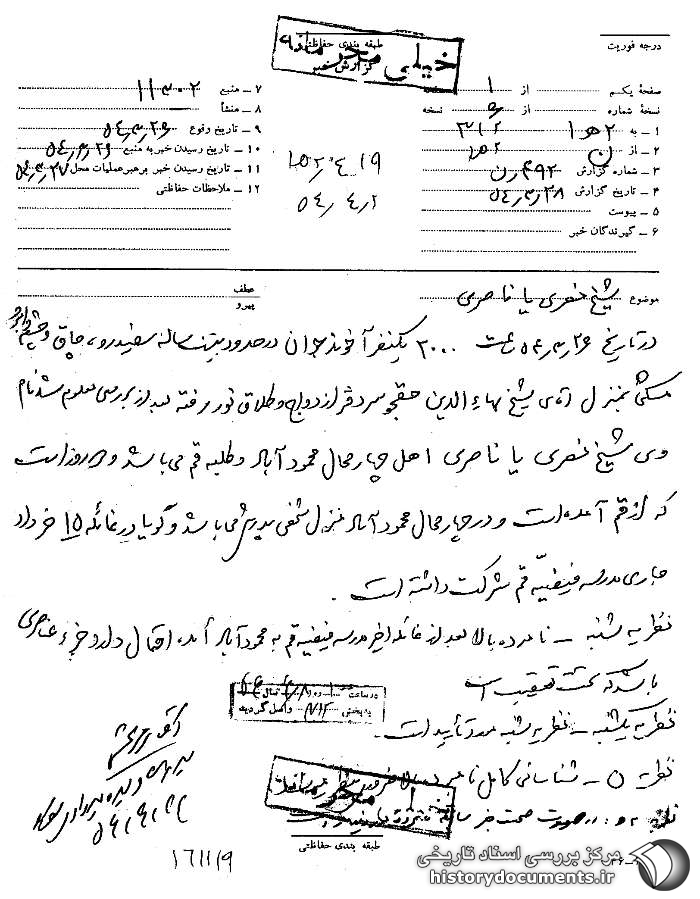 درجه فوریت
طبقه بندی حفاظتی
خیلی محرمانه
گزارش خبر
صفحهٔ یکم از ۱ صفحه
نسخهٔ شماره از نسخه
۱ ـ به ۲ هـ ۱ ۳۱۲
۲ ـ از ن ۲ هـ ۱
۳ ـ شماره گزارش
۴ ـ تاریخ گزارش ۵۴٫۳٫۲۸
۵ ـ پیوست
۶ ـ گیرندگان خبر
۷ ـ منبع ۱۱۳۰۲
۸ ـ منشأ
۹ ـ تاریخ وقوع ۵۴٫۳٫۲۶
۱۰ ـ تاریخ رسیدن خبر به منبع ۵۴٫۳٫۲۶
۱۱ ـ تاریخ رسیدن خبر برهبر عملیات محل ۵۴٫۳٫۲۷
۱۲ ـ ملاحظات حفاظتی
۵۴٫۴٫۲
موضوع شیخ نصری یا ناصری
عطف
پیرو
در تاریخ ۵۴٫۳٫۲۶ ساعت ۲۰۰۰ یکنفر آخوند جوان در حدود بیست ساله سفیدرو، چاق و چشم و ابرو
مشکی بمنزل آقای شیخ بهاءالدین حقجو سردفتر ازدواج و طلاق نور رفته بعد از بررسی معلوم شد نام
وی شیخ نصری یا ناصری اهل چهار محال محمود آباد و طلبه قم می باشد و روز است
که از قم آمده است و در چهار محال محمود آباد منزل شخصی پدرش می باشد و گویا در غائله ۱۵ خرداد
جاری مدرسه فیضیّه قم شرکت داشته است.
نظریه شنبه ـ نامبرده بالا بعد از غائله اخیر مدرسه فیضیه قم به محمود آباد آمده احتمال دارد جزء عناصری
باشد که تحت تعقیب است
نظریه یکشنبه ـ نظریه شنبه مورد تأیید است.
در ساعت روز سال
به بخش ۳۱۲ واصل گردید
نظریه ن ـ شناسائی کامل نامبرده بالا
خیلی محرمانه
در صورت صحت خبر
طبقه بندی حفاظتی
۱۶/۱/۹
مرکز بررسی اسناد تاریخی
historydocuments.ir